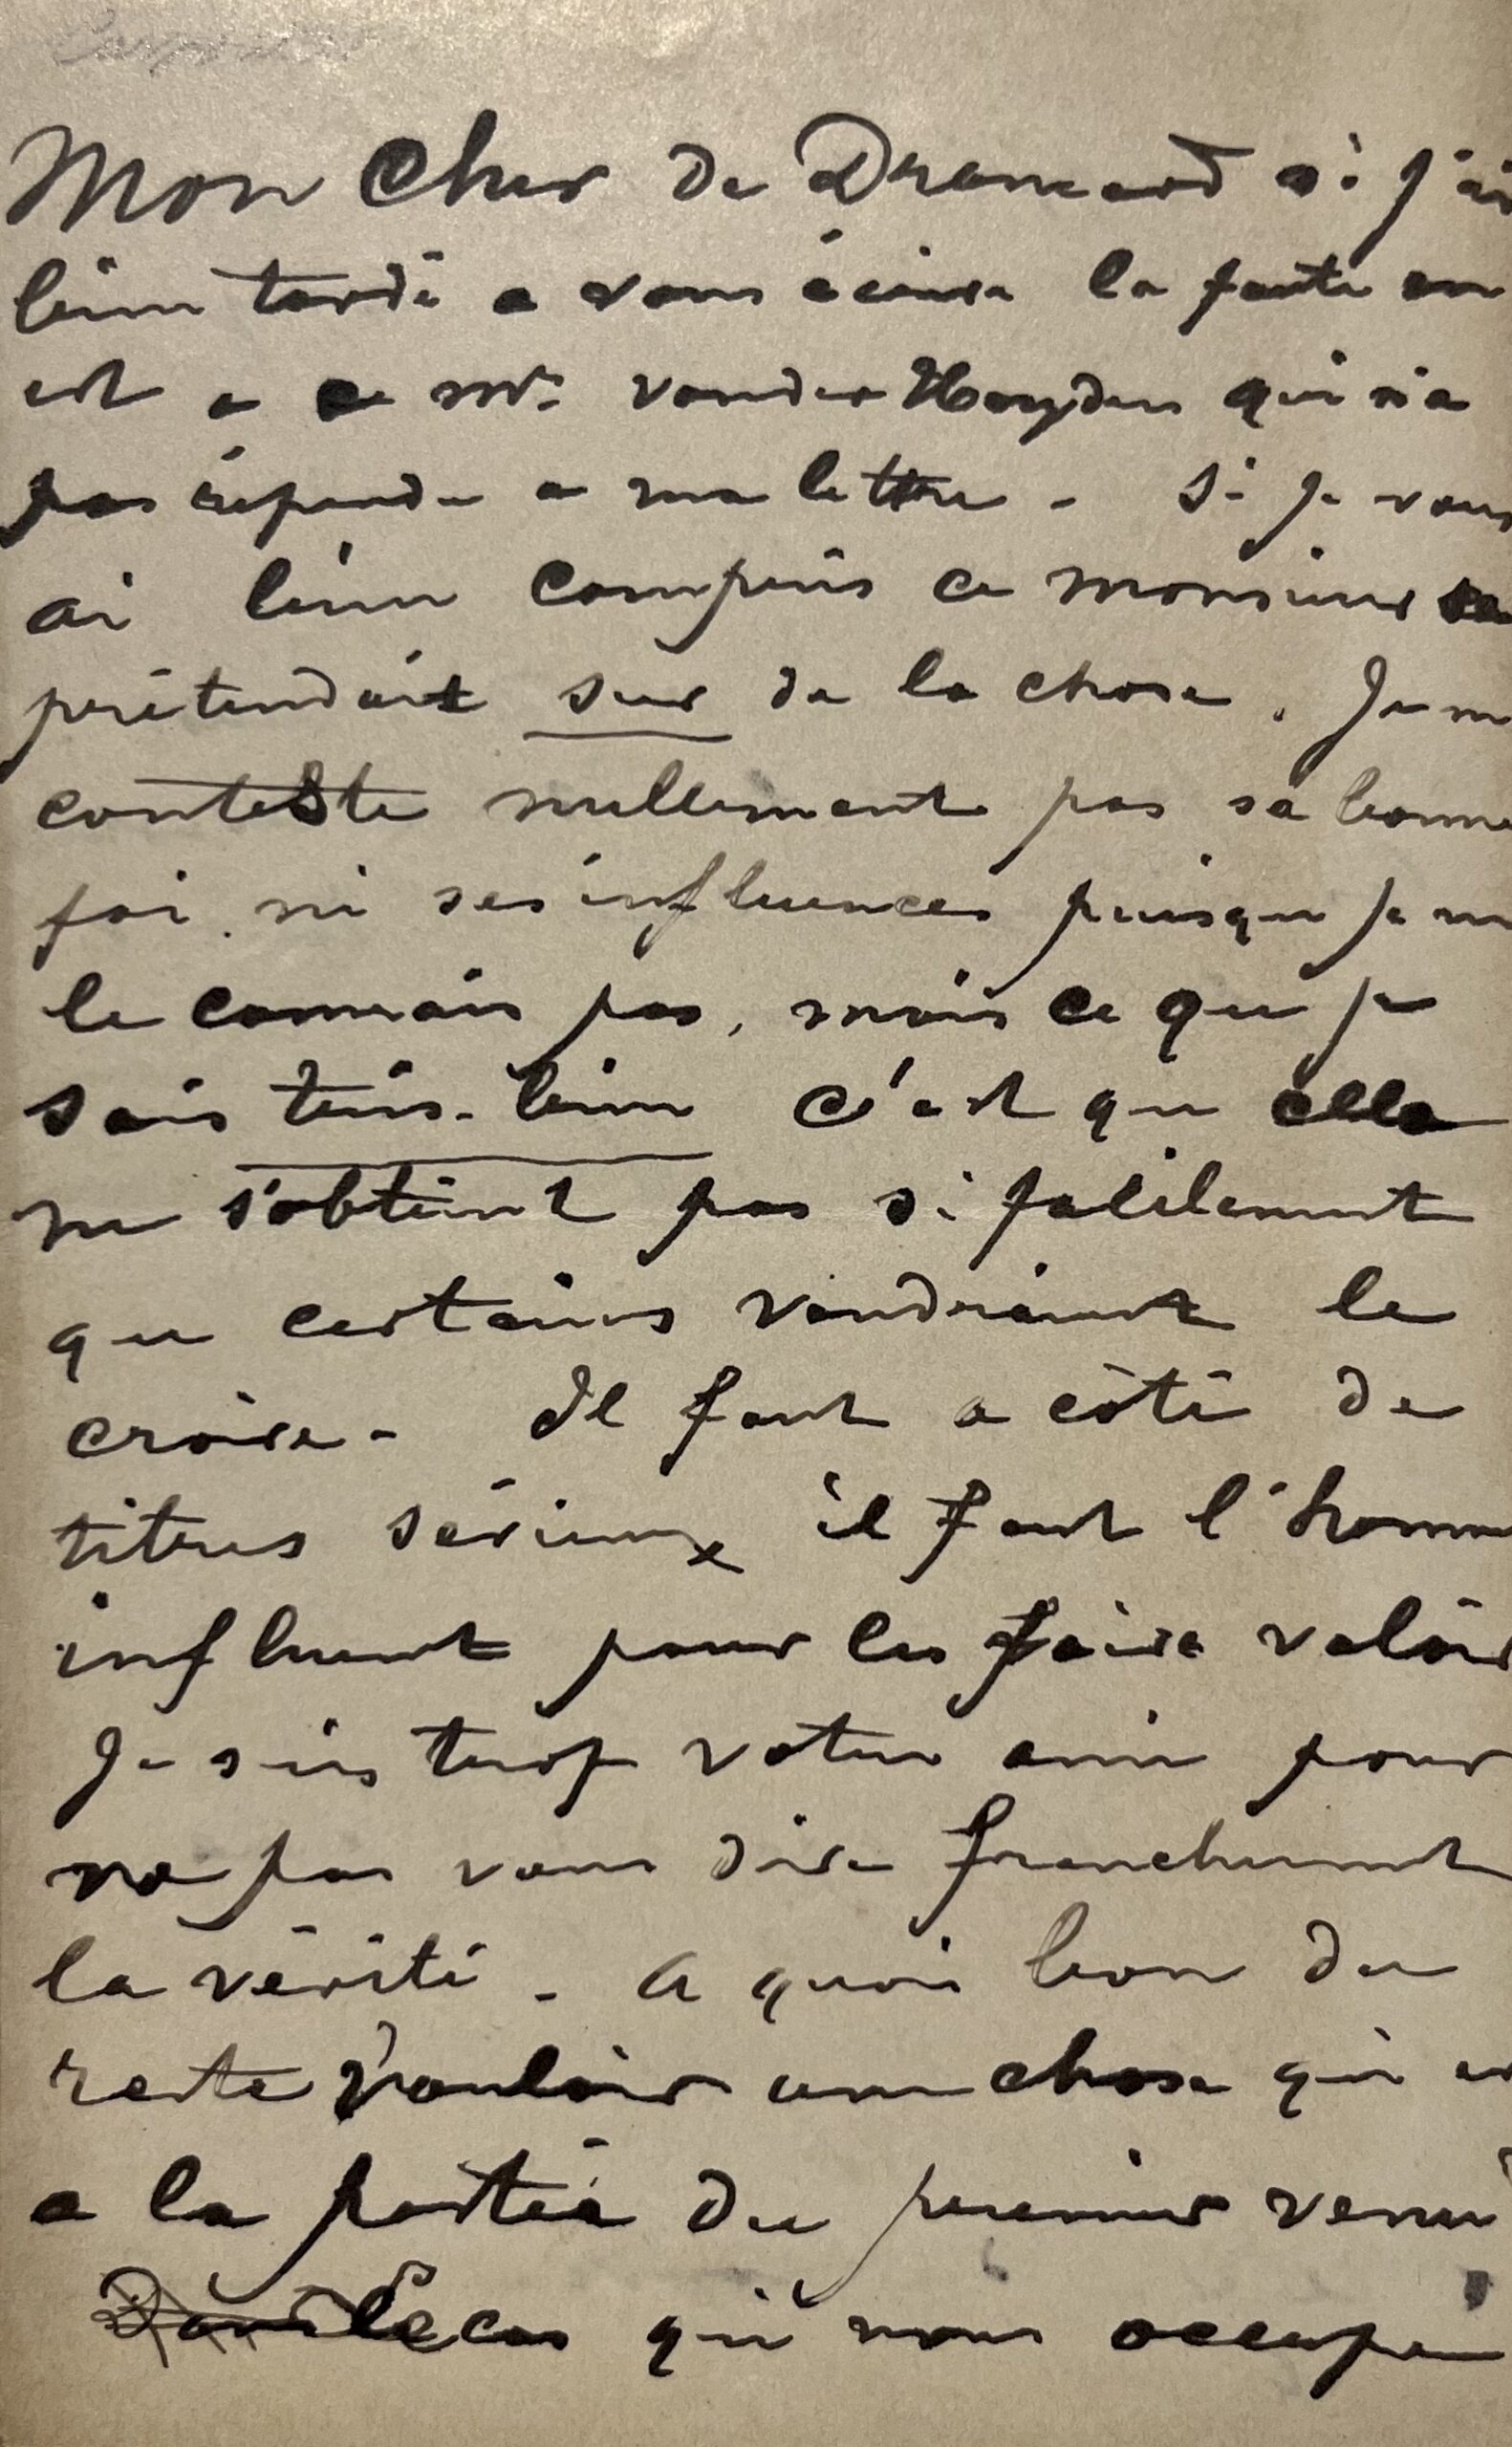 Mon Cher de Dramard si j'ai
bien tardé a vous écrire la faute en
est a ce Mr. vander Heyden qui n'a
pas répondu a ma lettre - Si je vous
ai bien compris ce monsieur se
prétendait sur de la chose. Je ne
conteste nullement pas sa bonne
foi ni ses influences puisque je ne
le connais pas, mais ce que je
sais très-bien c'est que cela
ne s'obtient pas si facilement
que certains voudraient le
croire - Il faut a côté de
titres sérieux il faut l'homme
influent pour les faire valoir
Je suis trop votre ami pour
ne pas vous dire franchement
la vérité - A quoi bon du
reste vouloir une chose qui est
a la portée du premier venu
Dans le cas qui nous occupe